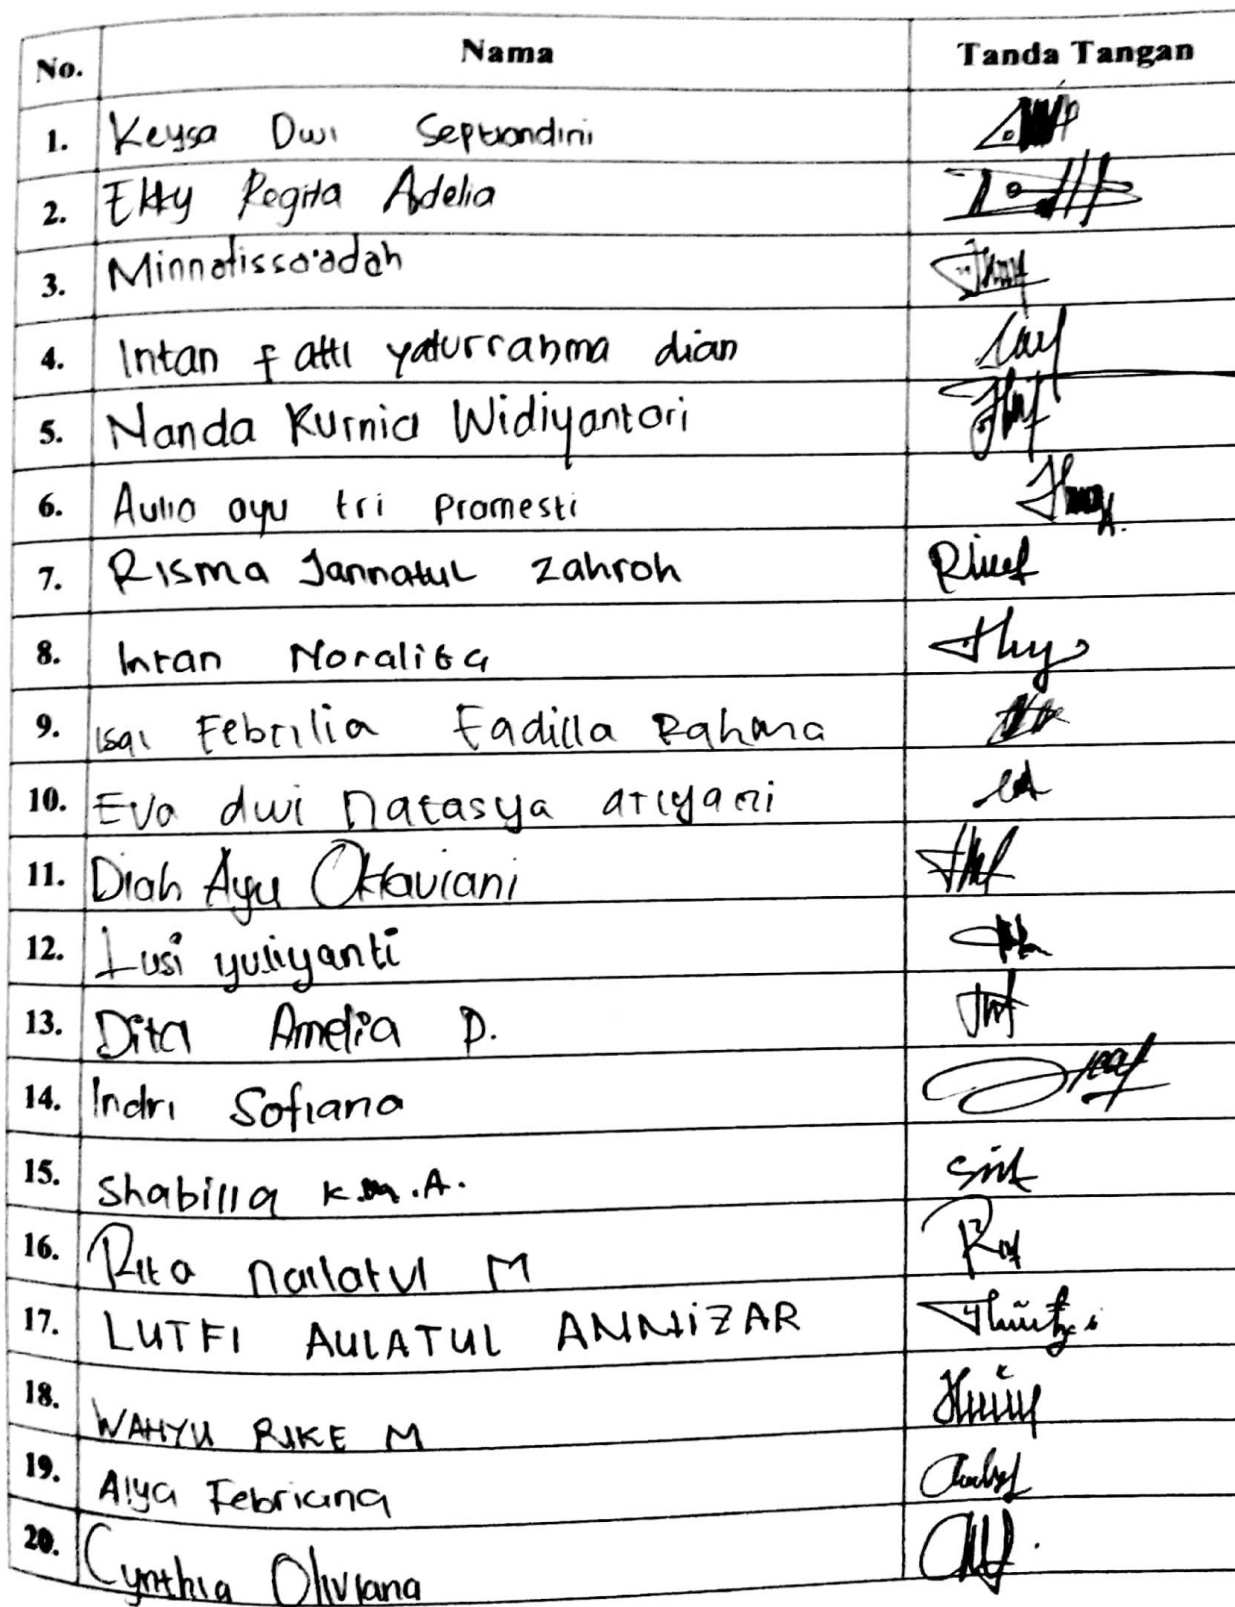 No. Nama Tanda Tangan
1. Keysa Dwi Septiandini
2. Ekky Regita Adelia
3. Minnatissa'adah
4. Intan fatti yaturrahma dian
5. Nanda Kurnia Widiyantari
6. Aulia ayu tri Pramesti
7. Risma Jannatul Zahroh
8. Intan Noralita
9. Febrilia Fadilla Rahma
10. Eva dwi natasya ariyani
11. Diah Ayu Oktaviani
12. Lusi yuliyanti
13. Dita Amelia P.
14. Indri Sofiana
15. Shabilla K.M.A.
16. Rita nailatul M
17. LUTFI AULATUL ANNIZAR
18. WAHYU RIKE M
19. Alya Febriana
20. Cynthia Oliviana